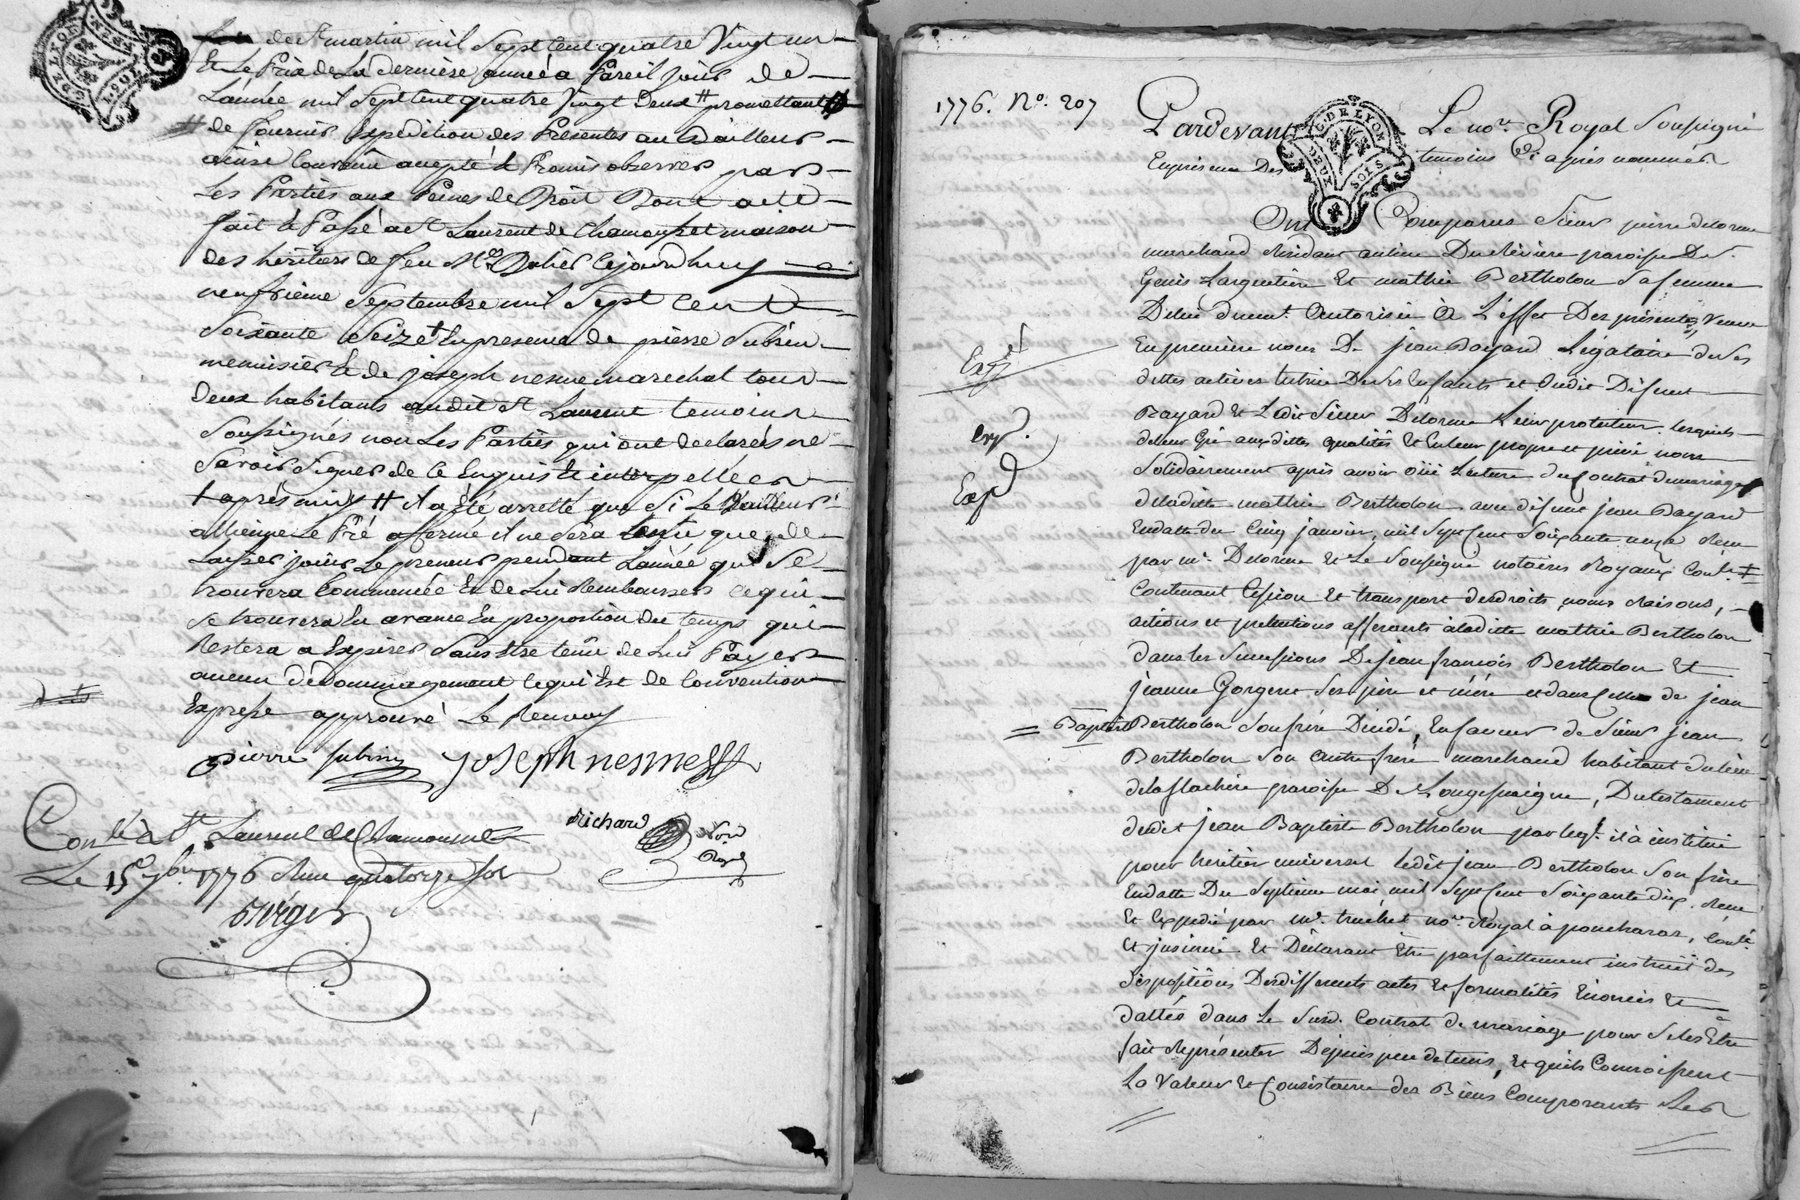 de St martin mil Sept Cent quatre Vingt un
Et Le Prix de La derniere année a Pareil jour de
L'année mil Sept Cent quatre Vingt deux # promettant
# de fournir Expedition des Presentes au Bailleur
ainsi Convenu accepté & Promis observer par
Les Parties aux Peines de Droit Dont acte
fait & Passé a St Laurent de Chamousset maison
des héritiers de feu Me cejourdhuy
neufvième Septembre mil Sept Cent
Soixante Seize + En presence de pierre Subrin
menuisier & de joseph nesme marechal tous
deux habitants audit St Laurent temoins
Soussignés non Les Parties qui ont declarées ne
Savoir Signer de ce Enquis & interpellees
+ après midy # il a été arretté que Si Le Bailleur
allienne Le Pré affermé il ne Sera tenu que de
Laisser jouir Le preneur pendant L'année qui Se
trouvera Commencée Et de Lui Rembourser ce qui
Se trouvera En avance En proportion du temps qui
Restera a Expirer Sans Etre tenu de Lui Payer
aucun dedommagement ce qui Est de Convention
Expresse approuvé Le Renvoy
pierre subrin joseph nesme
Richard
Not. Royal
Conlé à St Laurent de Chamousset
Le 15 7bre 1776 Reçu quatorze sols
1776. No. 207
Pardevant Le nore. Royal Soussigné
En présence Des temoins cy après nommés
GEN. DE LYON
DEUX SOLS
Ont Comparus Sieur pierre delorme
marchand Residant au lieu Du paroisse De St.
Genis Largentière Et mathie Bertholon Sa femme
De lui duemt. Autorisée A L'effet Des présentes, Veuve
En premiere noces De jean Bayard Légataire de Ses
dettes actives tutrice De Ses Enfants et dudit Défunt
Bayard Et Ledit Sieur Delorme Leur protuteur. Lesquels
de leur Gré auxdittes qualités Et En leur propre et privé nom
Solidairement après avoir oüi Lecture du Contrat de mariage
de laditte mathie Bertholon avec défunt jean Bayard
En datte du Cinq janvier mil Sept Cent Soixante onze Reçu
par me. Delorme Et Le Soussigné notaires Royaux Conlé. #
Contenant Cession Et transport des droits, noms, Raisons,
actions et prétentions afférents à laditte mathie Bertholon
dans les Successions De jean françois Bertholon Et
jeanne Gorgeret Ses père et mère et dans Celle de jean
= Baptiste Bertholon Son frère Décédé, En faveur de Sieur jean
Bertholon Son Autre frère marchand habitant du lieu
de la flachère paroisse De Longessaigne, Du testament
dudit jean Baptiste Bertholon par leql. il à institué
pour héritier universel ledit jean Bertholon Son frère
En datte Du Septieme mai mil Sept Cent Soixante dix. Reçu
Et Expedié par me. truchet nore. Royal à poncharas, Conlé.
Et jnsinué Et Déclarant Etre parfaittement instruit des
Dispositions Des differents actes Et formalités Enoncés Et
dattés dans Le Susd. Contrat de mariage pour Se les Etre
fait Représenter Dépuis peu de tems, Et qu'ils Connoissent
La Valeur Et Consistance des Biens Composants Les